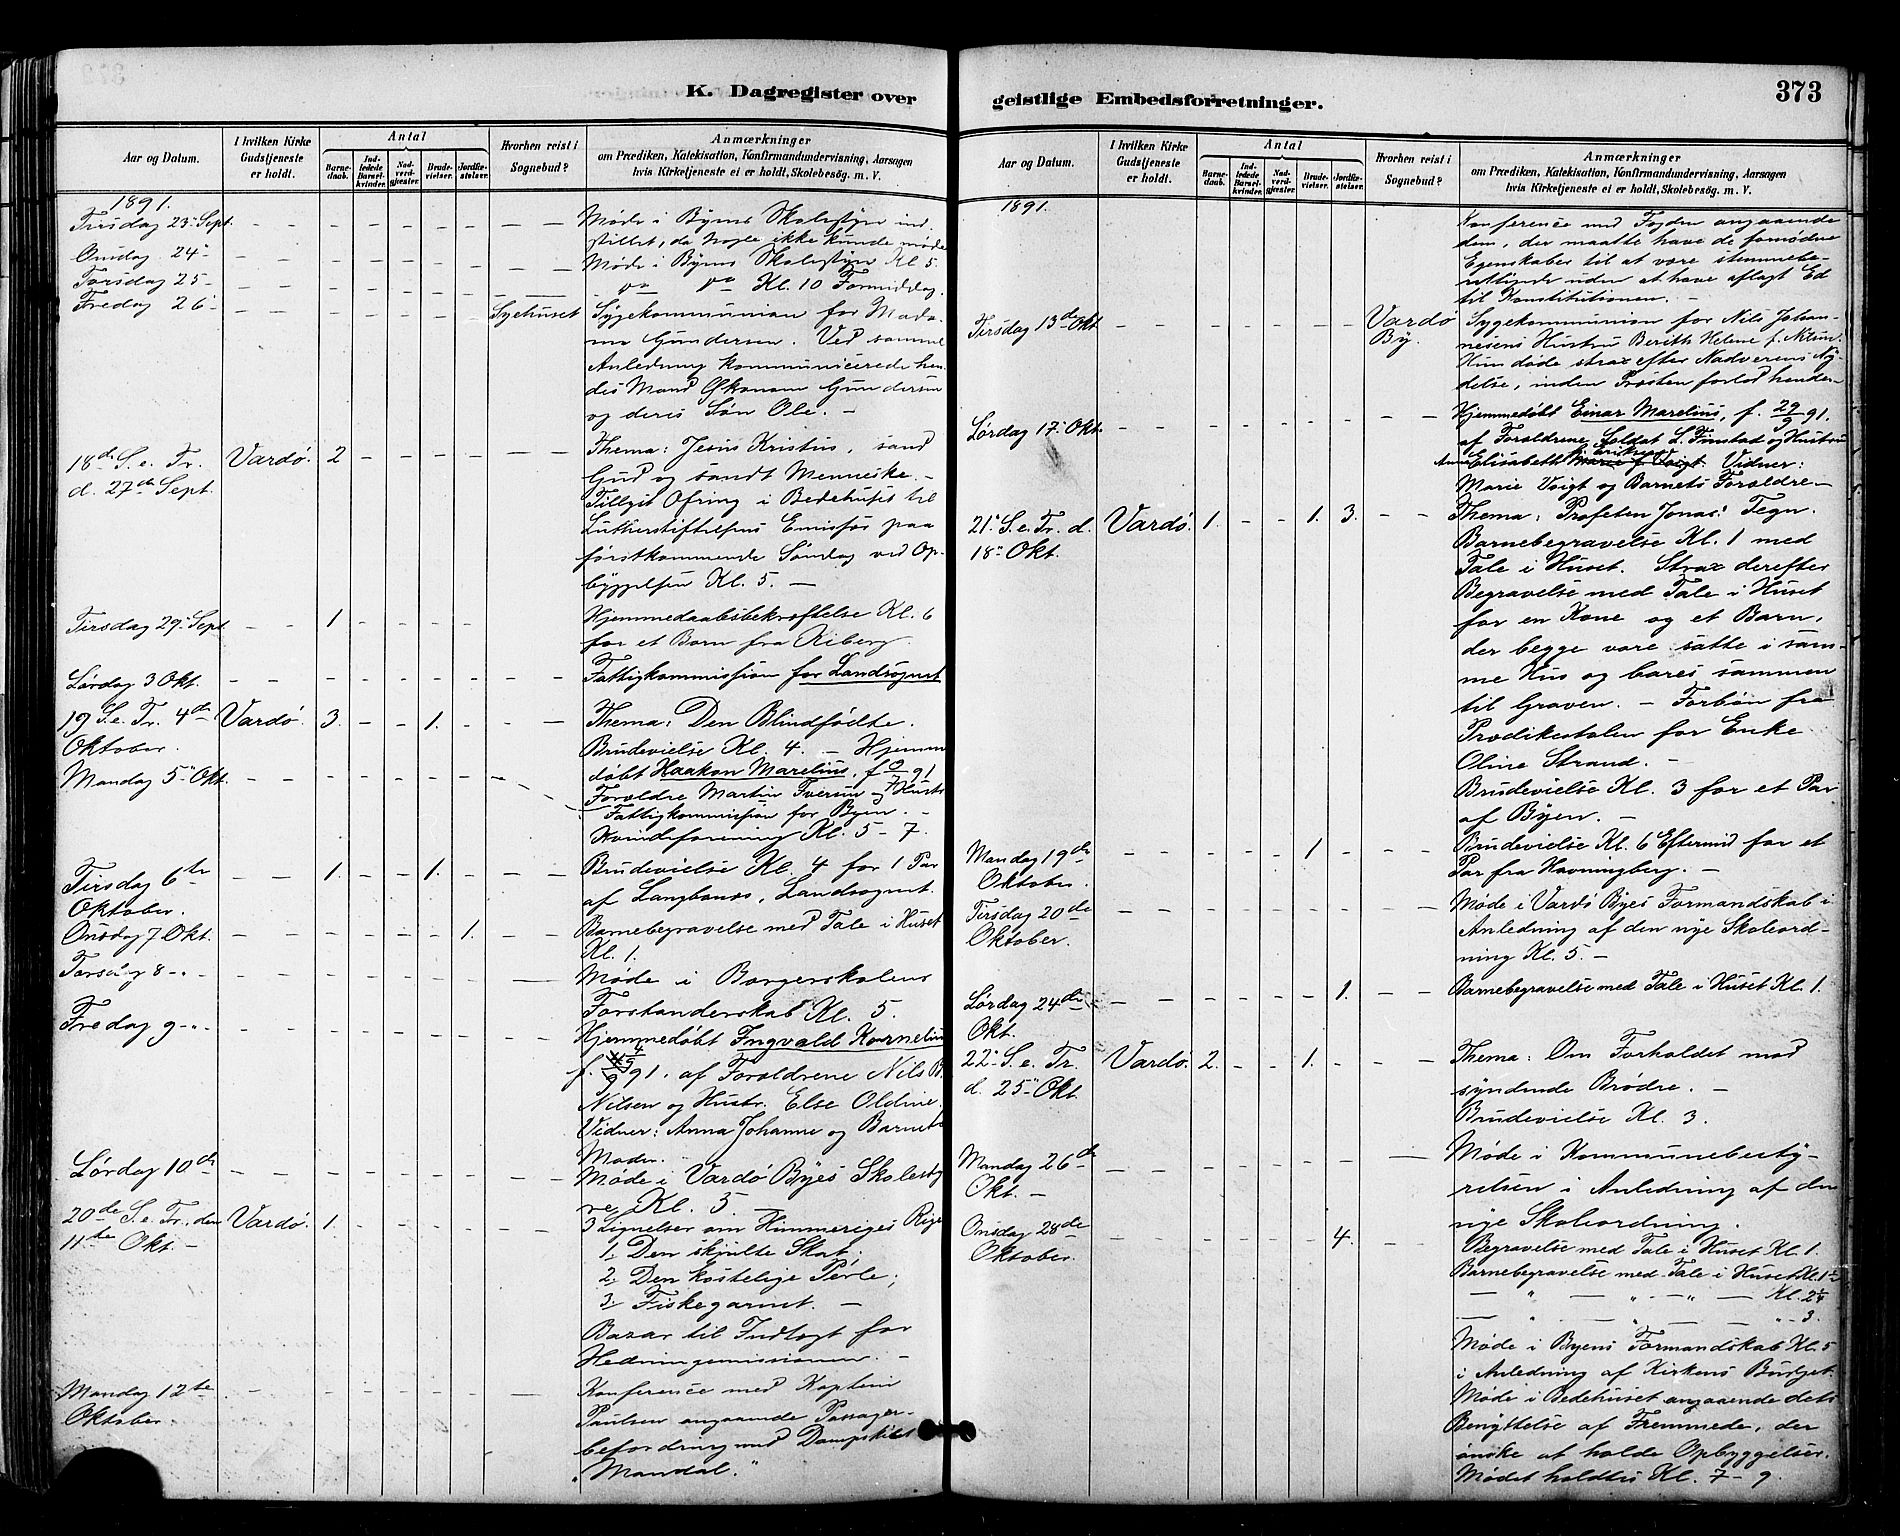 K. Dagregister over geistlige Embedsforretninger.
373
Aar og Datum.
I hvilken Kirke Gudstjeneste er holdt.
Antal
Barnedaab.
Indledede Barselkvinder.
Nadverdgjester.
Brudevielser.
Jordfæstelser.
Hvorhen reist i Sognebud?
Anmærkninger
om Prædiken, Katekisation, Konfirmandundervisning, Aarsagen
hvis Kirketjeneste ei er holdt, Skolebesøg. m. V.
1891.
Tirsdag 23 Sept. Møde i Byens Skolestyre ind
stillet, da Nogle ikke kunde møde
Onsdag 24 Møde i Byens Skolestyre Kl 5.
Torsdag 25 do do Kl. 10 Formiddag.
Fredag 26 Sygehuset Sygekommunion for Mada-
me Gundersen. Ved samme
Anledning kommunicerede hen-
des Mand Økonom Gundersen
og deres Søn Ole. –
18de S. e. Tr. Vardø. 2 Thema: Jesus Kristus, sand
d. 27de Sept. Gud og sandt Menneske. –
Tillyst Ofring i Bedehuset til
Lutherstiftelsens Emissær paa
førstkommende Søndag ved Op-
byggelsen Kl. 5. –
Tirsdag 29 Sept 1 Hjemmedaabsbekræftelse Kl. 6
for et Barn fra Kiberg.
Lørdag 3 Okt. Fattigkommission for Landsognet
19 S. e. Tr. 4de Vardø. 3. 1. Thema: Den Blindfødte.
Oktober. Brudevielse Kl. 4. – Hjemm
Mandag 5 Okt. døbt Haakon Marelius, f 91
Forældre Martin Iversen og Hustr
Fattigkommission for Byen. –
Kvindeforening Kl. 5 – 7.
Tirsdag 6te 1. 1. Brudevielse Kl. 4 for 1 Par
Oktober. af Langbunæs, Landsognet.
Onsdag 7 Okt. 1. Barnebegravelse med Tale i Huset
Kl. 1.
Torsdag 8 Møde i Borgerskolens
Forstanderskab Kl. 5.
Fredag 9 Hjemmedøbt Ingvald Kornelius
f. 91. af Forældrene Nils B.
Nilsen og Hustr. Else Oldine.
Vidner: Anna Johanne og Barnets
Moder.
Lørdag 10de Møde i Vardø Byes Skolesty
re Kl. 5. –
20de S. e. Tr. den Vardø. 1. 3 Lignelser om Himmeriges Rige
11te Okt. – 1. Den skjulte Skat;
2. Den kostelige Perle;
3. Fiskegarnet. –
Bazar til Indtægt for
Hedningemissionen. –
Mandag 12te Konference med Kaptein
Oktober. Paulsen angaaende Passager-
befordring med Dampskibet
"Mandal."
Aar og Datum.
I hvilken Kirke Gudstjeneste er holdt.
Antal
Barnedaab.
Indledede Barselkvinder.
Nadverdgjester.
Brudevielser.
Jordfæstelser.
Hvorhen reist i Sognebud?
Anmærkninger
om Prædiken, Katekisation, Konfirmandundervisning, Aarsagen
hvis Kirketjeneste ei er holdt, Skolebesøg. m. V.
1891.
Konference med Fogden angaaende
dem, der maatte have de fornødne
Egenskaber til at være stemmebe-
rettigede uden at have aflagt Ed
til Konstitutionen. –
Tirsdag 13de Okt Vardø By. Sygekommunion for Nils Johan-
nesens Hustru Berith Helene f. Nilsen.
Hun døde strax efter Nadverens Ny-
delse, inden Præsten forlod hende –
Lørdag 17 Okt. Hjemmedøbt Einar Marelius, f. 29/9 91.
af Forældrene Soldat L. Finstad og Hustru
Anne Elisabeth f. Eriksen Marie f. Voigt. Vidner:
Marie Voigt og Barnets Forældre –
21 S. e. Tr. d. Vardø. 1. 1. 3. Thema: Profeten Jonas' Tegn.
18 Okt. Barnebegravelse Kl. 1 med
Tale i Huset. Strax derefter
Begravelse med Tale i Huset
for en Kone og et Barn,
der begge vare satte i sam-
me Hus og bares sammen
til Graven. – Forbøn fra
Prædikestolen for Enke
Oline Strand. –
Brudevielse Kl. 3 for et Par
af Byen. –
Mandag 19de 1 Brudevielse Kl. 6 Eftermid for et
Oktober. Par fra Havningberg. –
Tirsdag 20de Møde i Vardø Byes Formandskab i
Oktober. Anledning af den nye Skoleord-
ning Kl. 5. –
Lørdag 24de 1. Barnebegravelse med Tale i Huset Kl. 1.
Okt.
22 S. e. Tr. Vardø. 2. 1. Thema: Om Forholdet mod
d. 25 Okt. syndende Brødre. –
Brudevielse Kl. 3.
Mandag 26de Møde i Kommunebesty-
Okt. – relsen i Anledning af den
nye Skoleordning.
Onsdag 28de 4. Begravelse med Tale i Huset Kl. 1.
Oktober. Barnebegravelse med Tale i Huset Kl. 1½
— " — " — " — Kl. 2¼
— " — " — " 3.
Møde i Byens Formandskab Kl. 5
i Anledning af Kirkens Budget.
Møde i Bedehuset angaaende dets
Benyttelse af Fremmede, der
ønske at holde Opbyggelser.
Mødet holdtes Kl. 7 – 9.